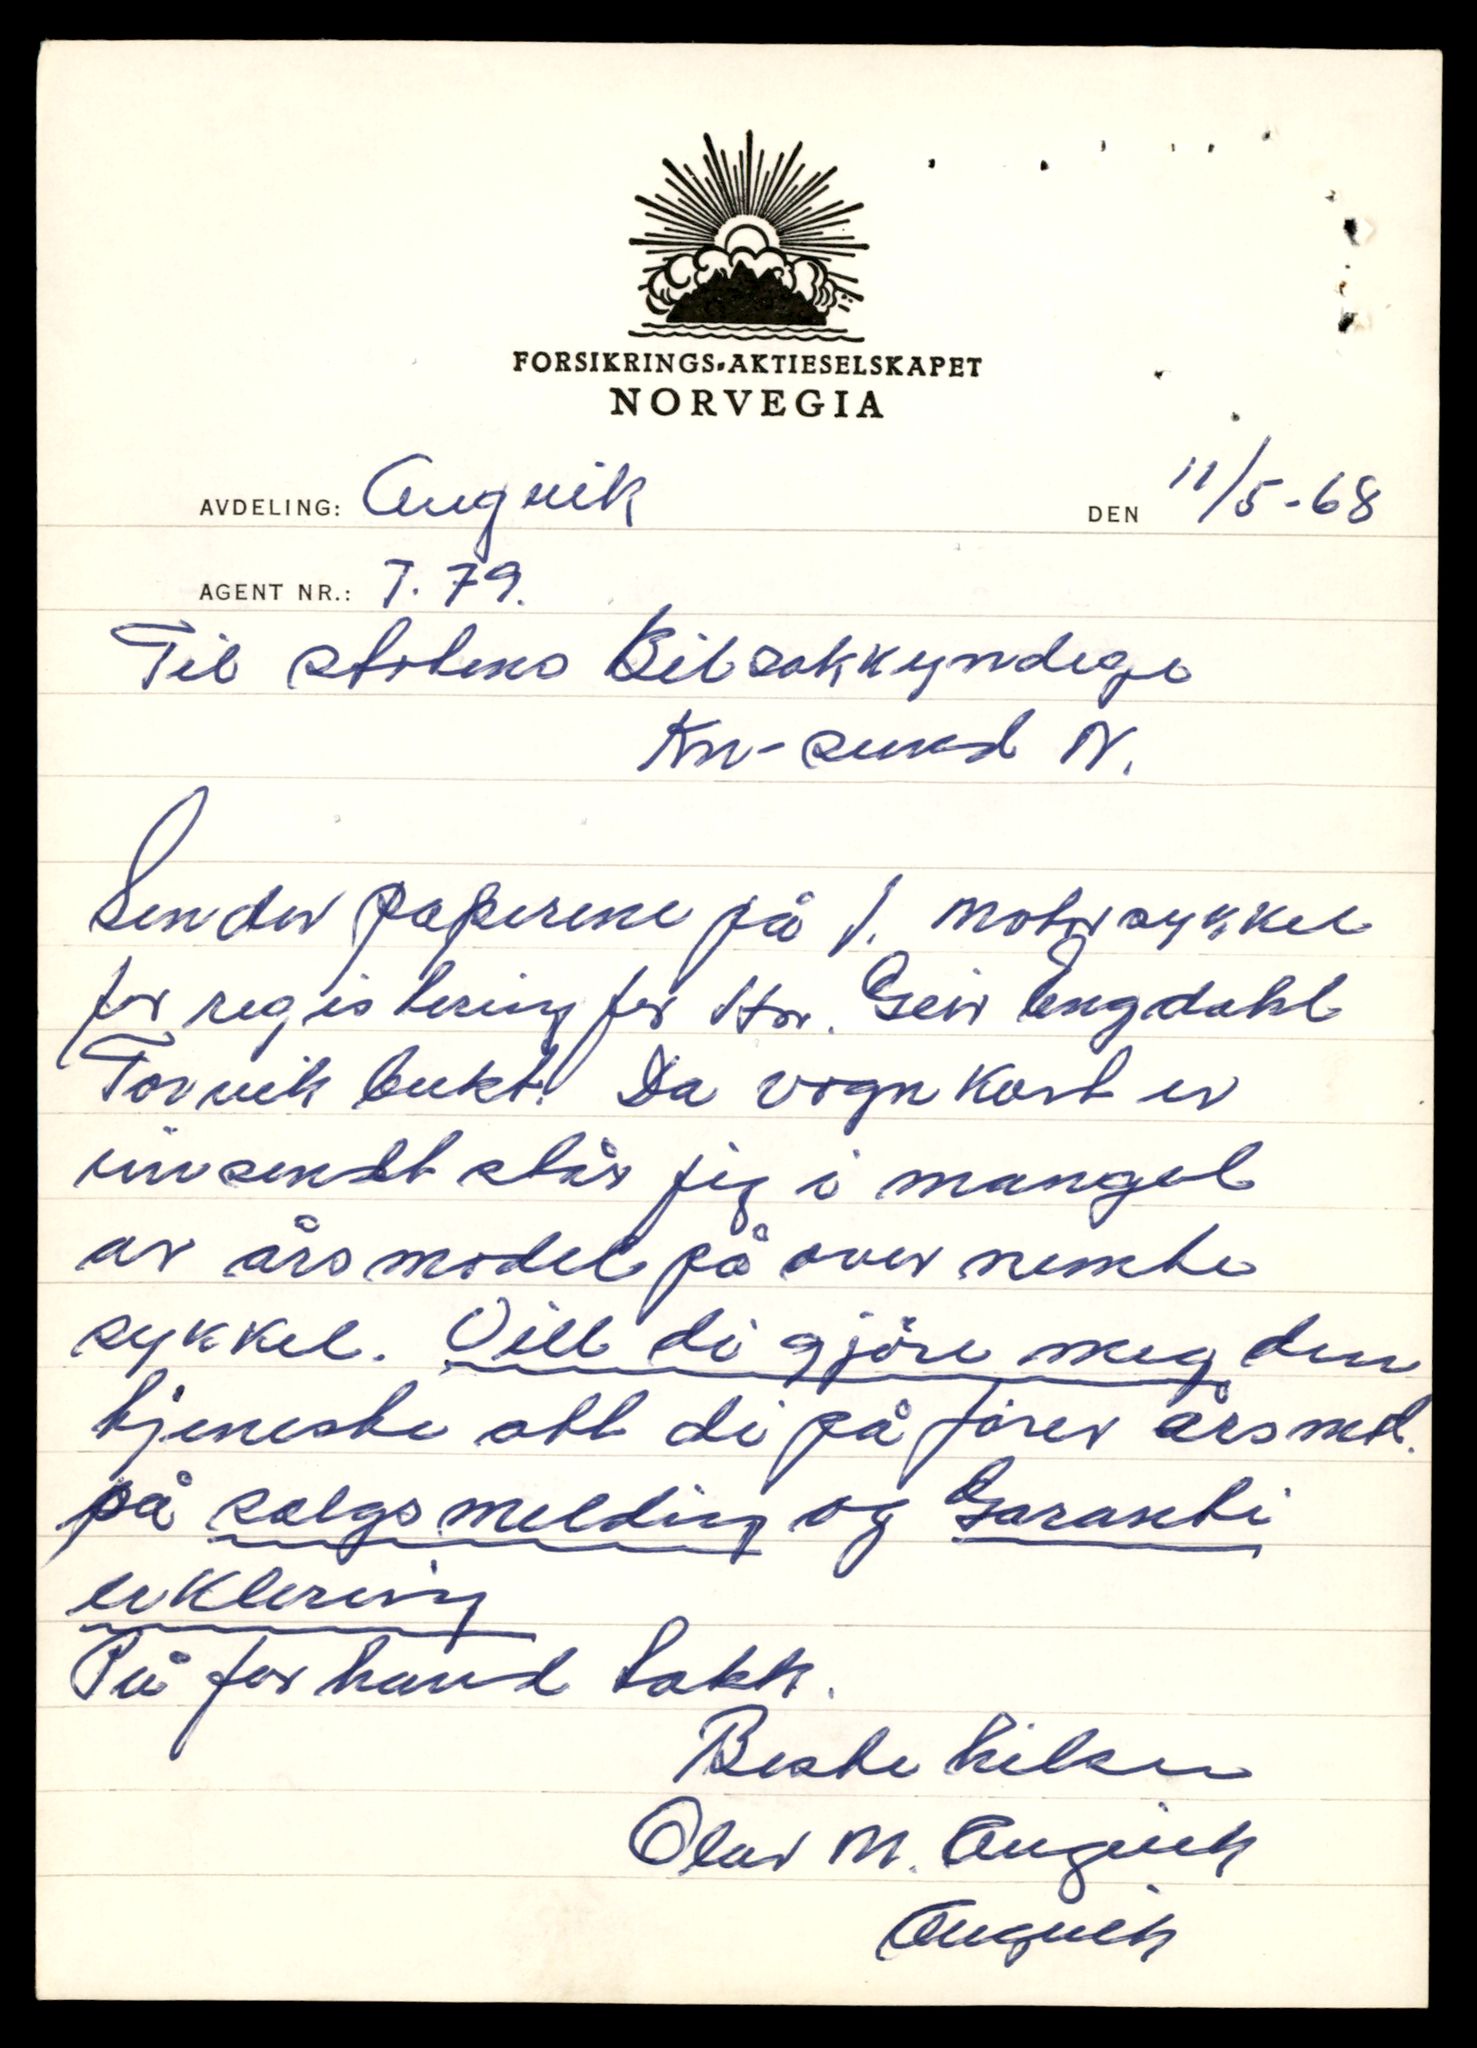 FORSIKRINGS-AKTIESELSKAPET
NORVEGIA
AVDELING: Angvik
DEN 11/5-68
AGENT NR.: T. 79.
Til statens Bilsakkyndige
Kr-sund N.
Sender paperene på 1. motorsykkel
for registering for Hr. Geir Engdahl
Torvikbukt. Da vognkort er
innsendt står jeg i mangel
av årsmodel på overnemte
sykkel. Vill di gjöre meg den
tjeneste att di på förer årsmd.
på salgsmelding og Garanti
erklering
På forhand takk.
Beste hilsen
Olav M. Angvik
Angvik